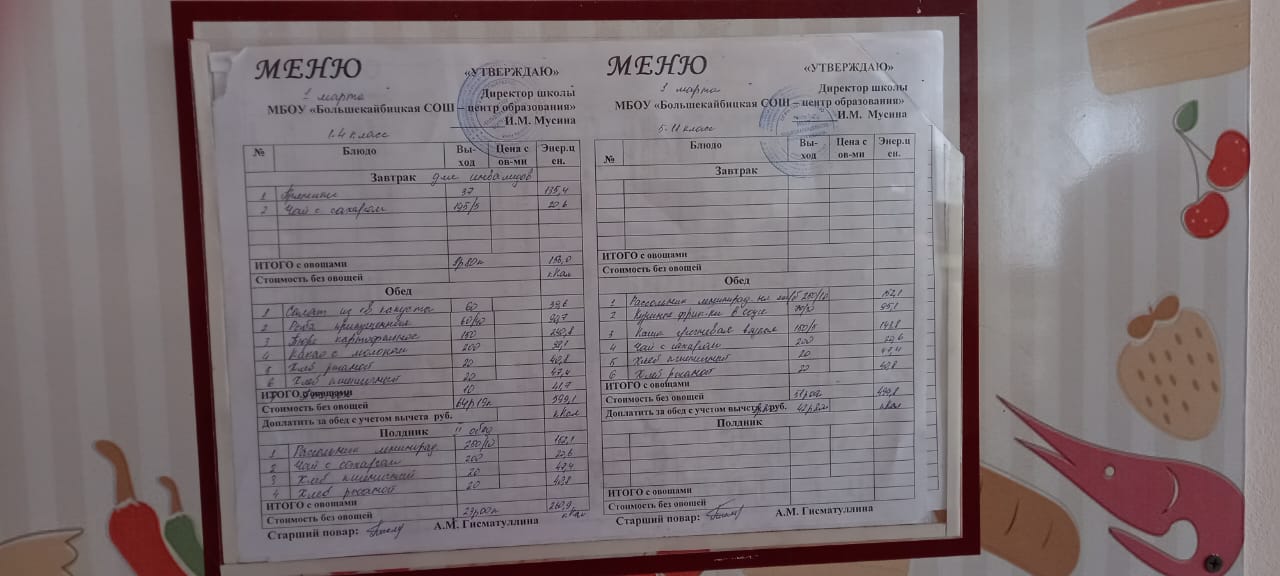 МЕНЮ
«УТВЕРЖДАЮ»
1 марта
Директор школы
МБОУ «Большекайбицкая СОШ – центр образования»
И.М. Мусина
1-4 класс
№ Блюдо Вы-ход Цена с ов-ми Энер.ц ен.
Завтрак для инвалидов
1 37 135,4
2 Чай с сахаром 195/5 20,6
ИТОГО с овощами
Стоимость без овощей ккал
Обед
1 Салат из капусты 60
2 Рыба припущенная
3 Пюре картофельное 150
4 Какао с молоком 200
5 Хлеб ржаной 20 40,8
6 Хлеб пшеничный 20 47,4
10 41,7
ИТОГО с овощами
Стоимость без овощей 64р15к 599,1
Доплатить за обед с учетом вычета руб. ккал
Полдник II обед
1 Рассольник ленинград. 250/10 152,1
2 Чай с сахаром 200 20,6
3 Хлеб пшеничный 20 47,4
4 Хлеб ржаной 20 40,8
ИТОГО с овощами 260,9
Стоимость без овощей 23р00к ккал
Старший повар: А.М. Гисматуллина
МЕНЮ
«УТВЕРЖДАЮ»
1 марта
Директор школы
МБОУ «Большекайбицкая СОШ – центр образования»
И.М. Мусина
5-11 класс
№ Блюдо Вы-ход Цена с ов-ми Энер.ц ен.
Завтрак
ИТОГО с овощами
Стоимость без овощей
Обед
1 Рассольник ленинград. на м/б 250/10 152,1
2 Куриные фрик-ки в соусе 95,1
3 Каша гречневая вязкая 150/5
4 Чай с сахаром 200 20,6
5 Хлеб пшеничный 20 47,4
6 Хлеб ржаной 20 40,8
ИТОГО с овощами
Стоимость без овощей
Доплатить за обед с учетом вычета руб. ккал
Полдник
ИТОГО с овощами
Стоимость без овощей
Старший повар: А.М. Гисматуллина